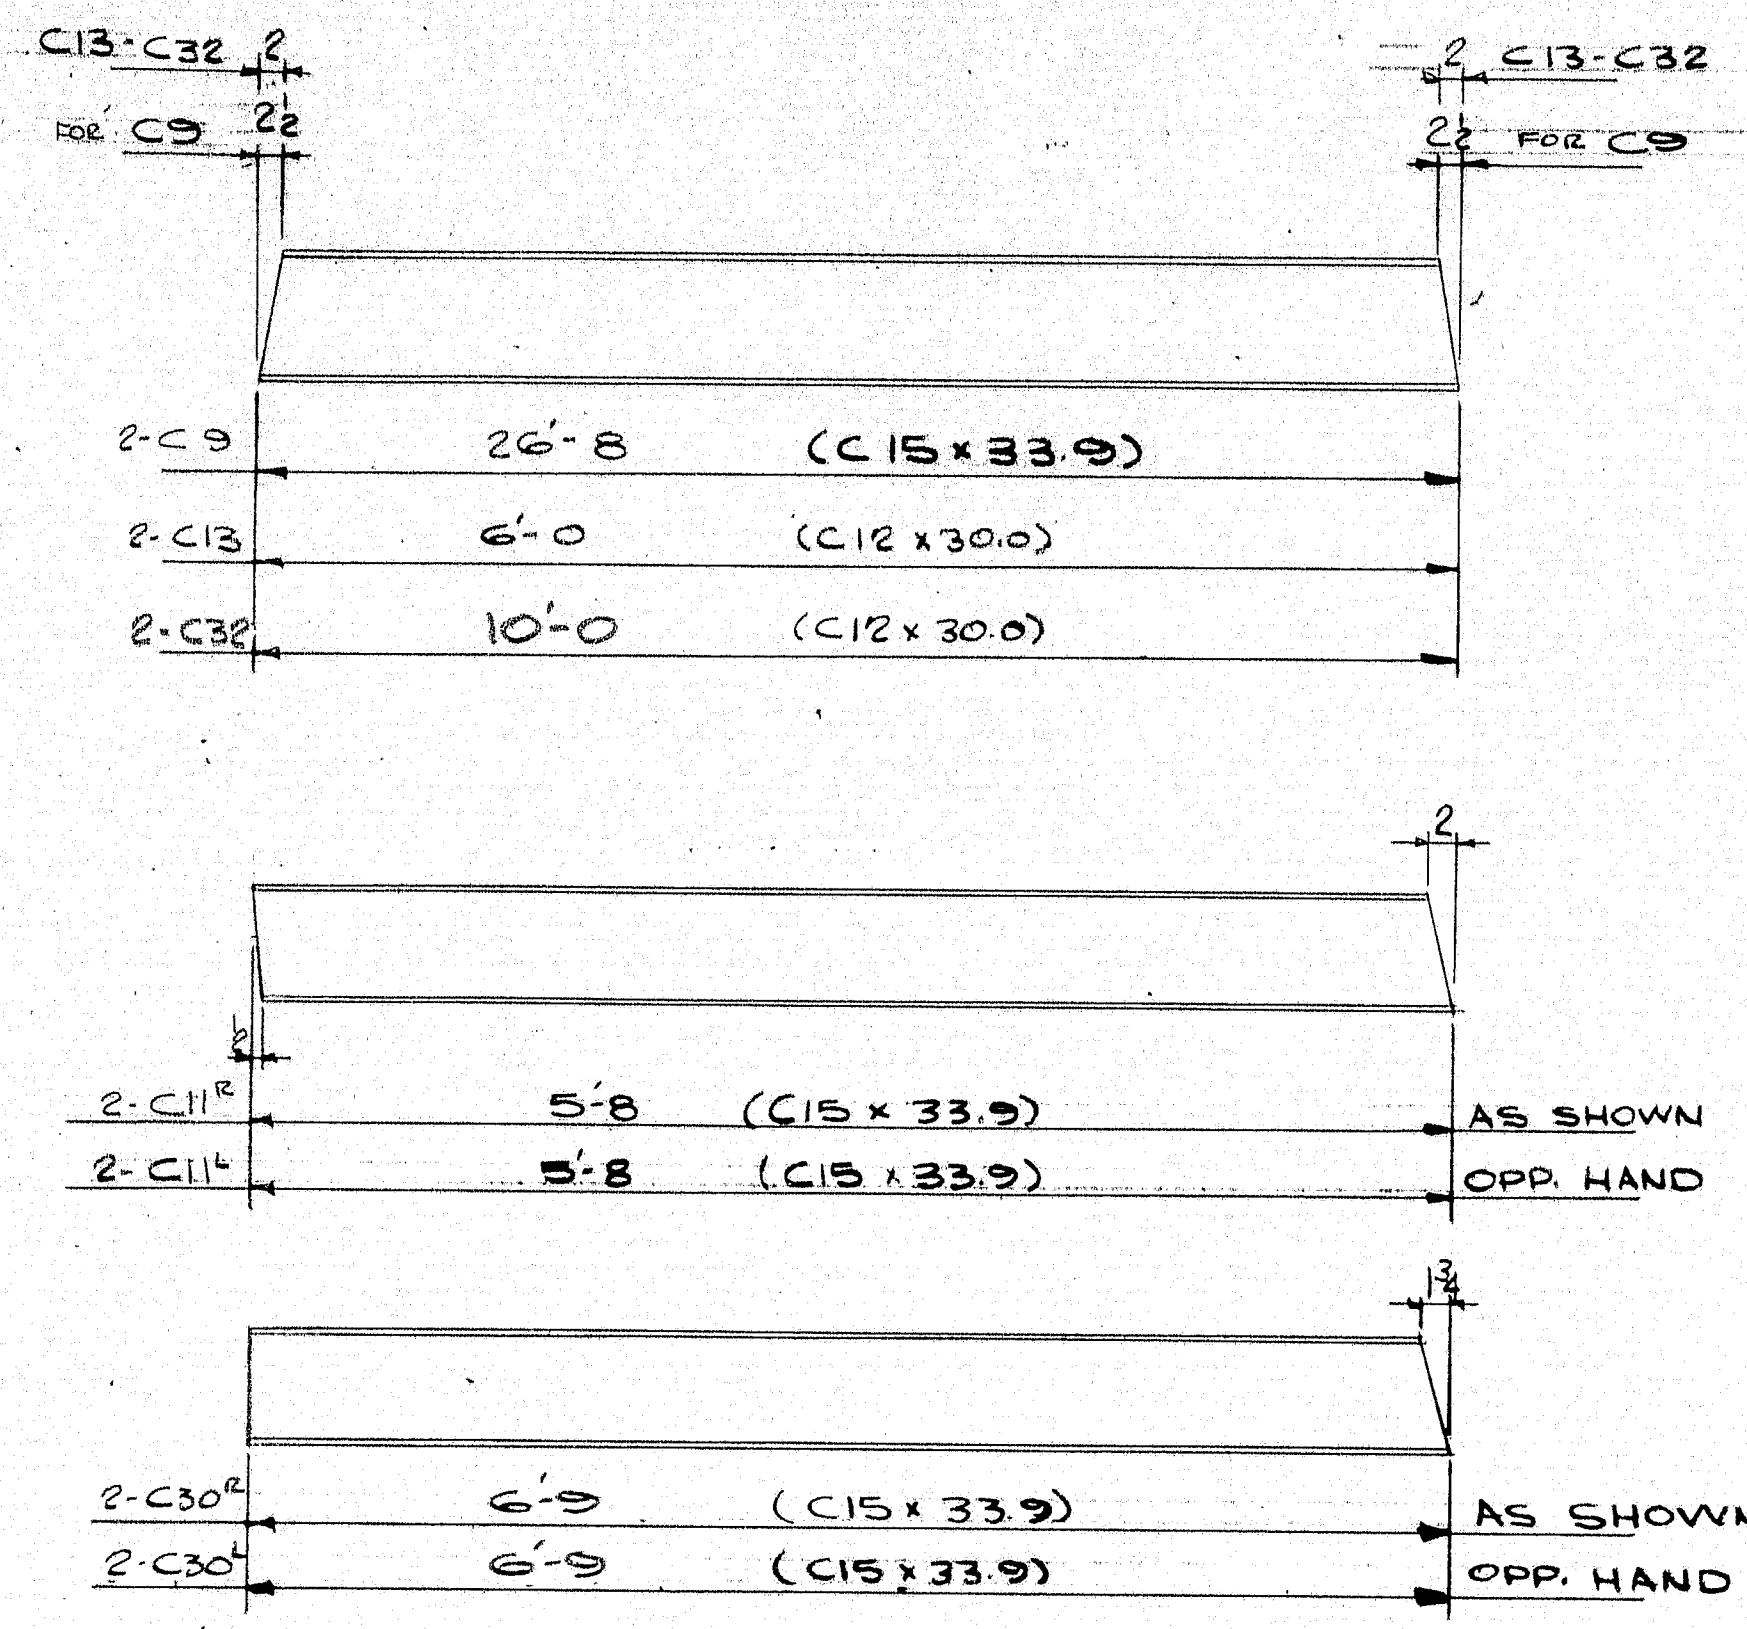 C13-C32 2
2 C13-C32
FOR C9 2 1/2
2 1/2 FOR C9
2-C9 26'-8 (C15 x 33.9)
2-C13 6'-0 (C12 x 30.0)
2-C32 10'-0 (C12 x 30.0)
2
1/2
2-C11R 5'-8 (C15 x 33.9) AS SHOWN
2-C11L 5'-8 (C15 x 33.9) OPP. HAND
1 3/4
2-C30R 6'-9 (C15 x 33.9) AS SHOWN
2-C30L 6'-9 (C15 x 33.9) OPP. HAND